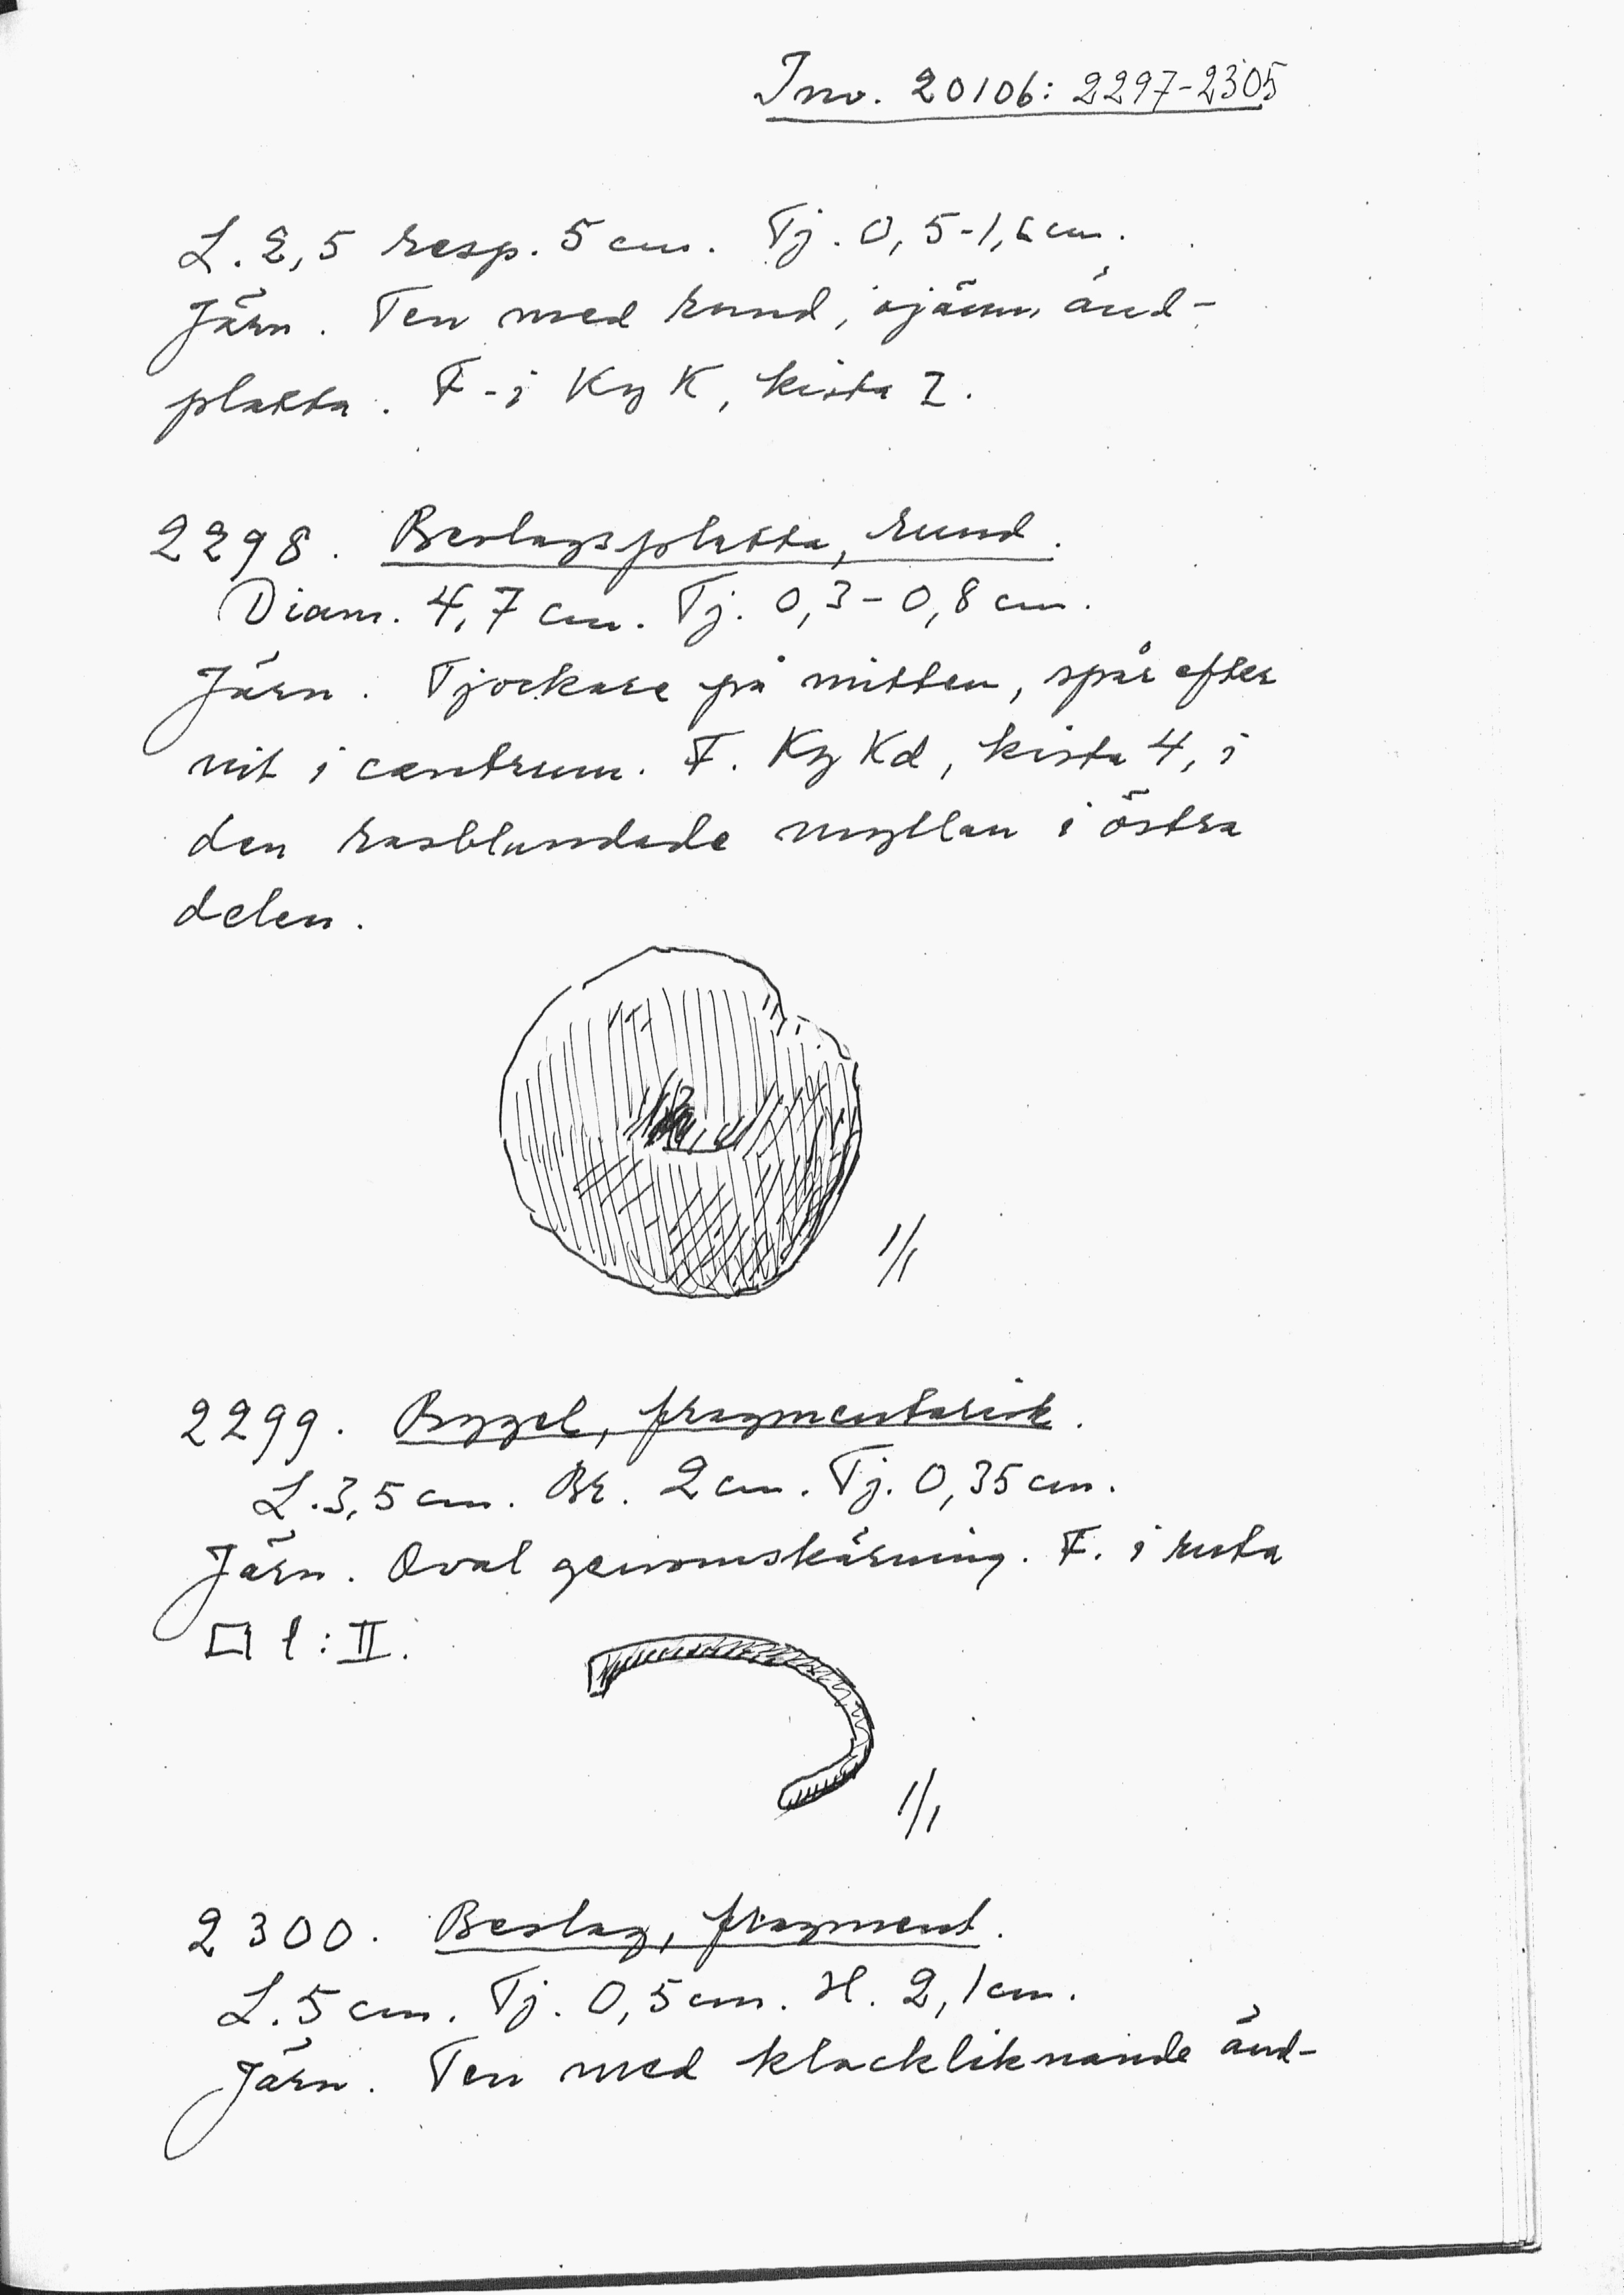 Inv. 20106: 2297-2305
L. 2,5 resp. 5 cm. Tj. 0,5-1,6 cm.
Järn. Ten med rund, ojämn änd-
platta. F. i Ky K, kista I.
2298. Beslagsplatta, rund.
Diam. 4,7 cm. Tj. 0,3-0,8 cm.
Järn. Tjockare på mitten, spår efter
nit i centrum. F. Ky Kd, kista 4, i
den rasblandade myllan i östra
delen.
1/1
2299. Bygel, fragmentarisk.
L. 3,5 cm. Br. 2 cm. Tj. 0,35 cm.
Järn. Oval genomskärning. F. i ruta
□ l:II.
1/1
2300. Beslag, fragment.
L. 5 cm. Tj. 0,5 cm. H. 2,1 cm.
Järn. Ten med klackliknande änd-